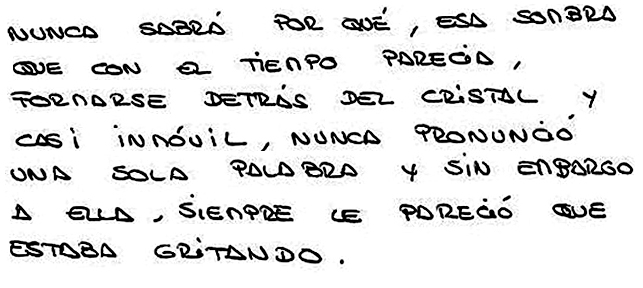 NUNCA SABRÁ POR QUÉ, ESA SOMBRA
QUE CON EL TIEMPO PARECIA,
FORMARSE DETRÁS DEL CRISTAL Y
CASI INMÓVIL, NUNCA PRONUNCIÓ
UNA SOLA PALABRA Y SIN EMBARGO
A ELLA, SIEMPRE LE PARECIÓ QUE
ESTABA GRITANDO.